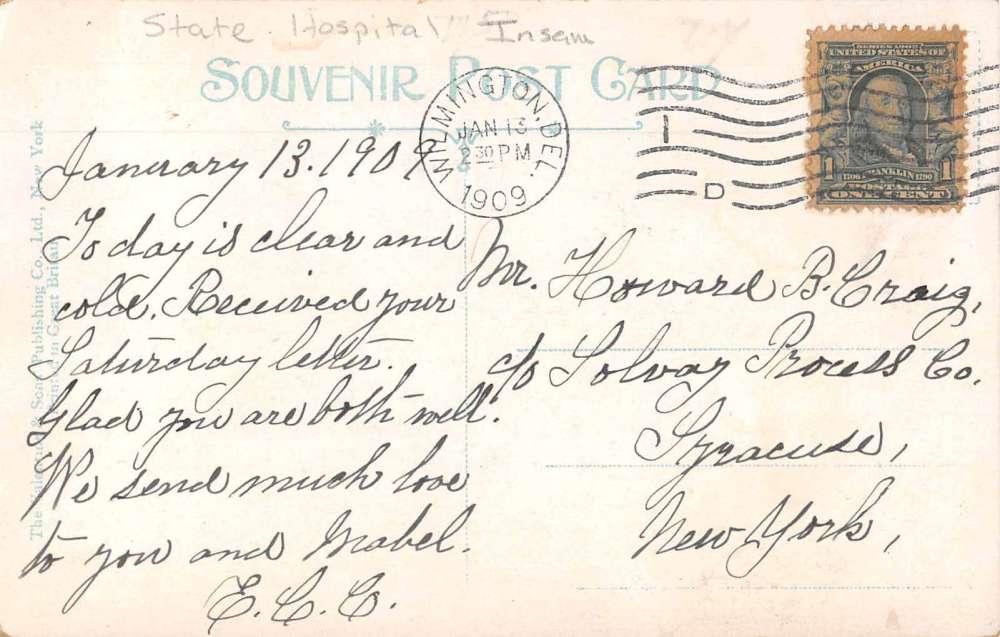 State Hospital Insane
SOUVENIR POST CARD
WILMINGTON, DEL.
JAN 13
2 30 PM
1909
I
D
SERIES 1902
UNITED STATES OF
AMERICA
1706 FRANKLIN 1790
1 POSTAGE 1
ONE CENT
January 13. 1909
To day is clear and
cold. Received your
Saturday letter.
Glad you are both well.
We send much love
to you and Mabel.
E.C.C.
Mr. Howard B. Craig,
c/o Solvay Process Co.
Syracuse,
New York,
The Valentine & Sons Publishing Co., Ltd., New York
Printed in Great Britain